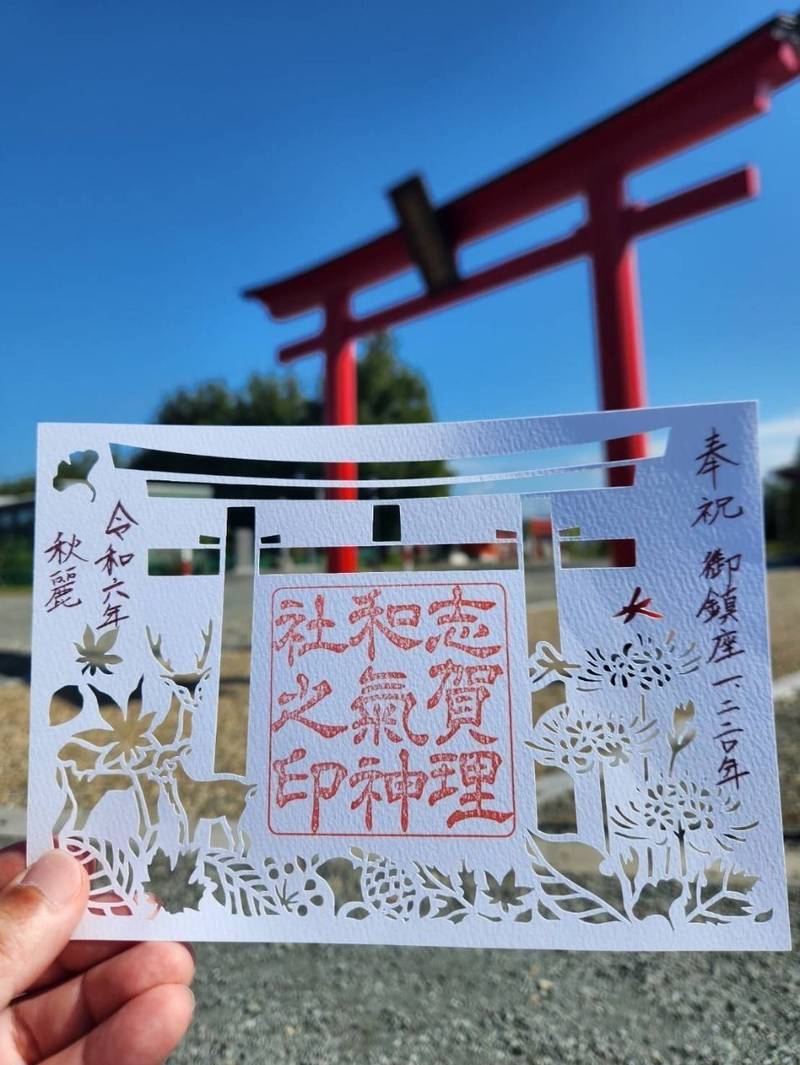 奉祝 御鎮座一、二二〇年
志賀理
和氣神
社之印
令和六年
秋麗